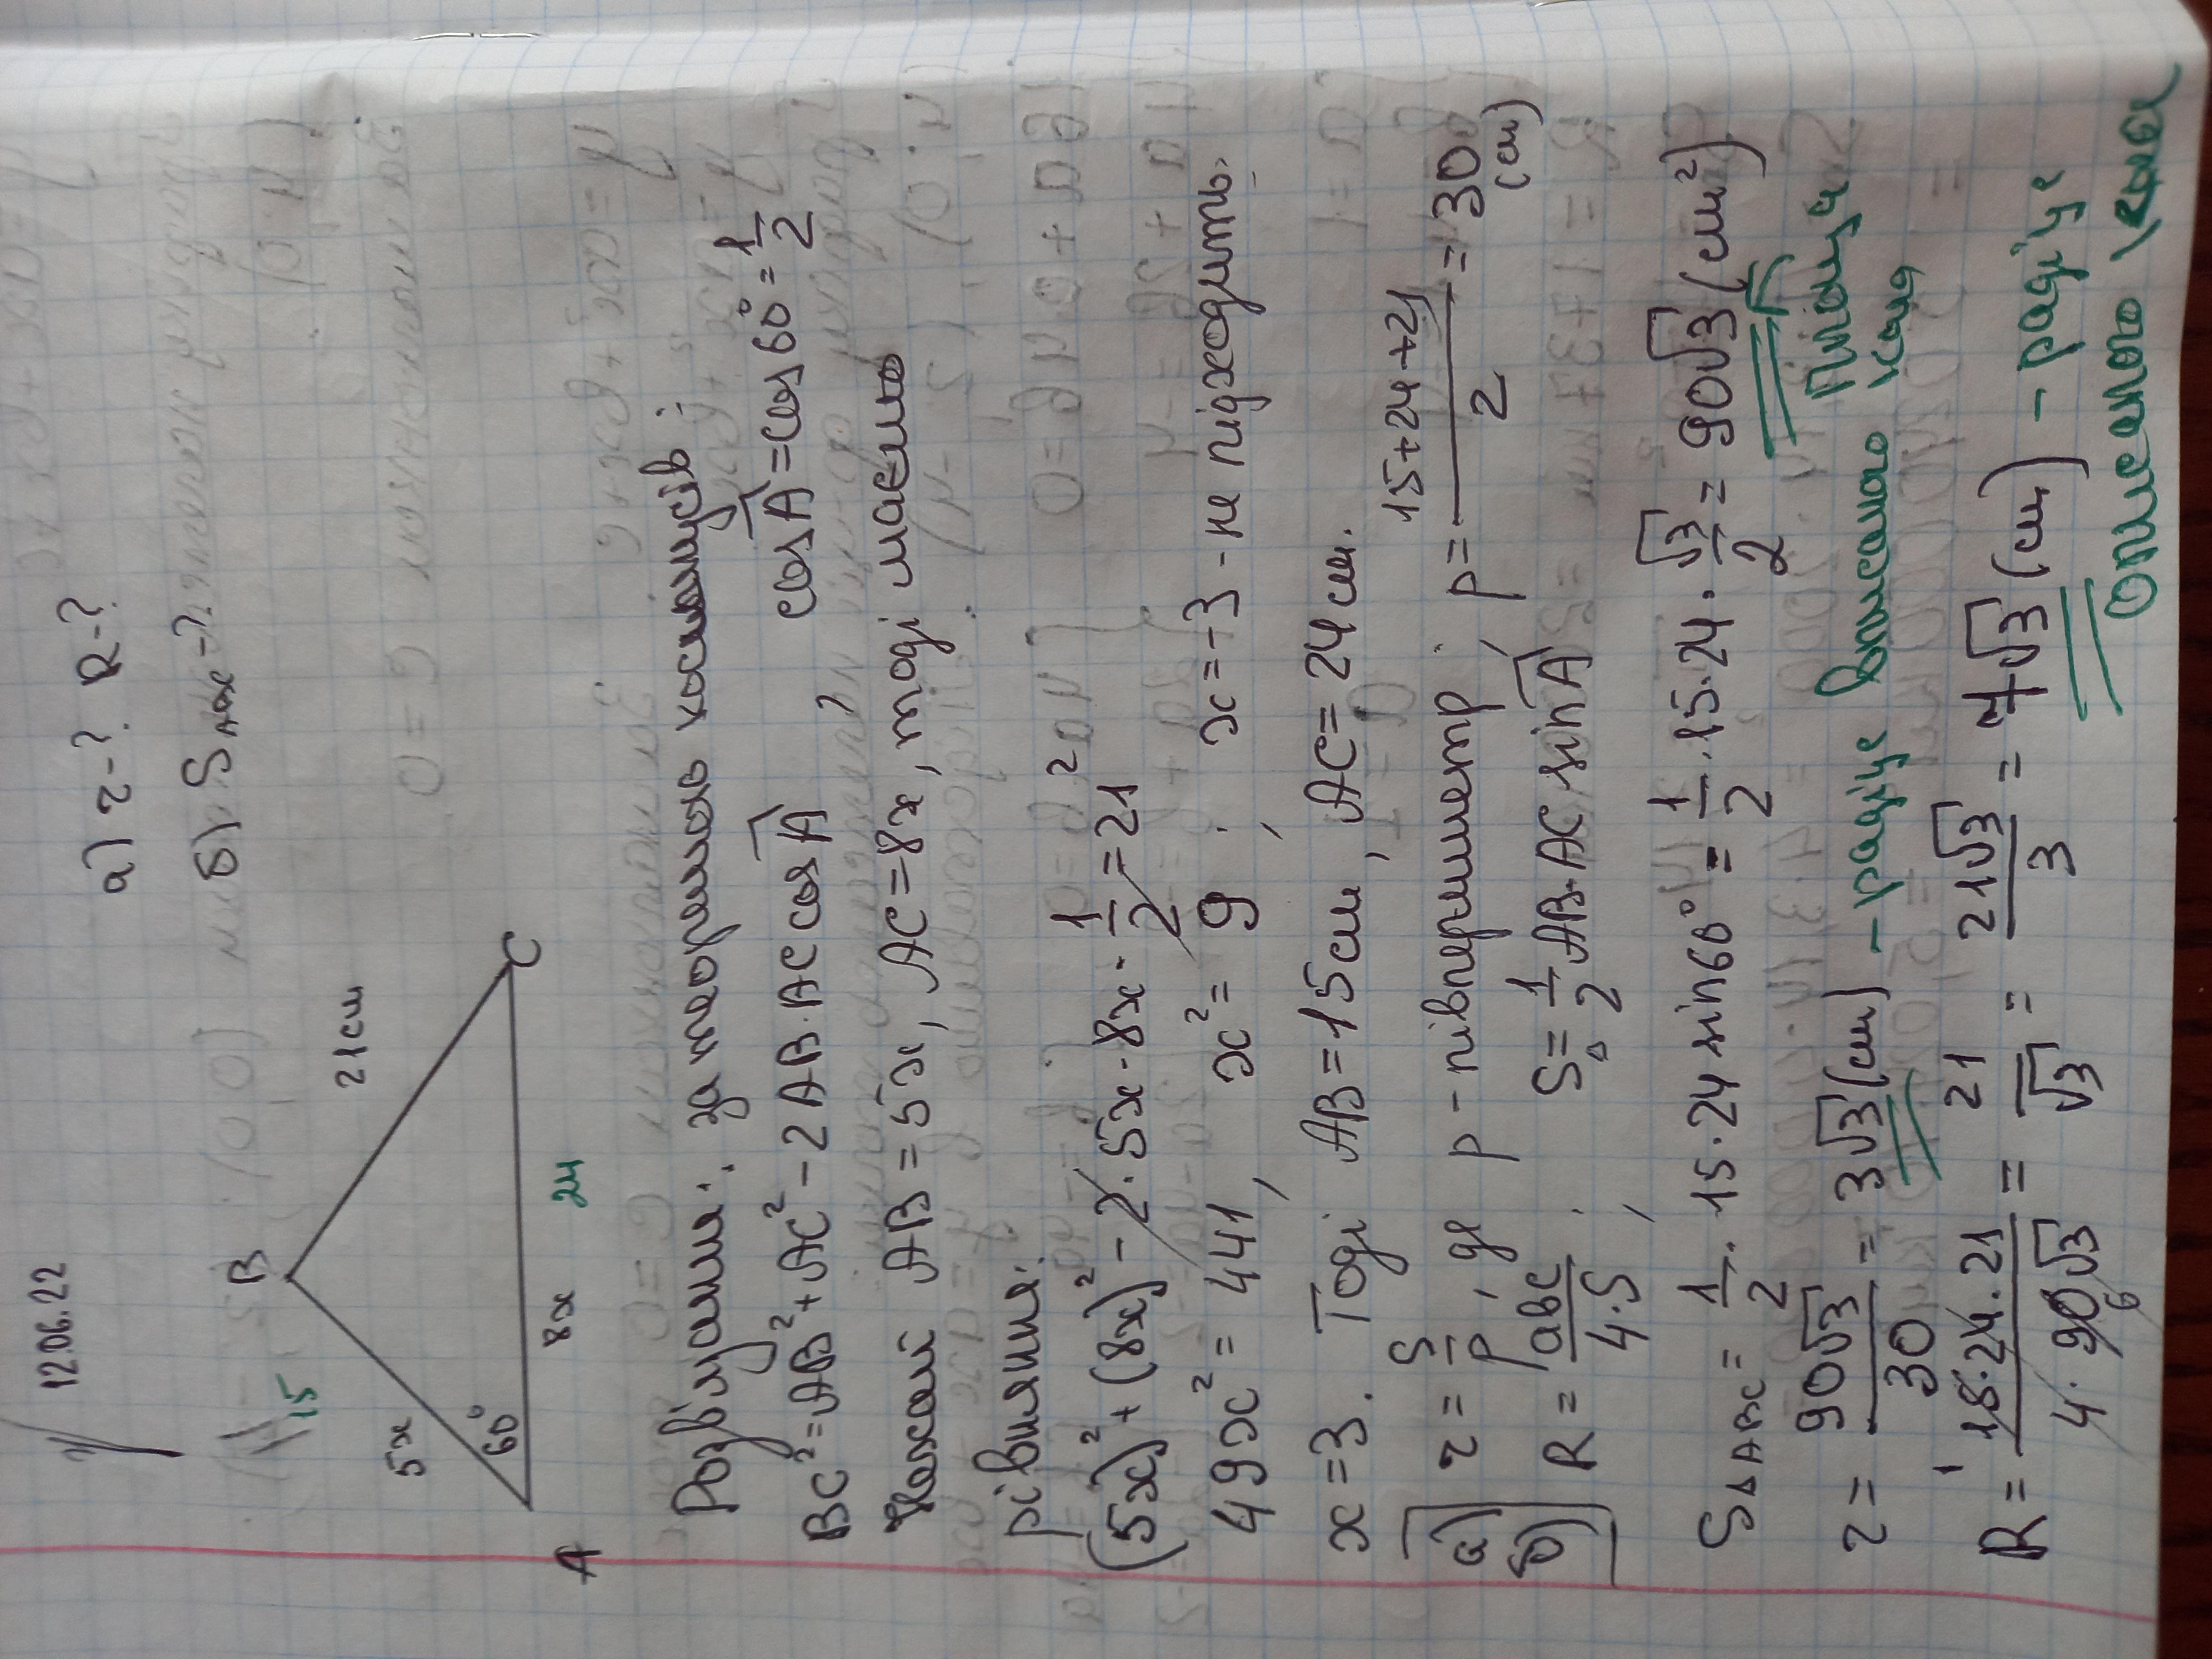 1/ 12.06.22
а) r-? R-?
б) S△ABC-?
B
15
5x
21см
60°
A
8x 24
C
Розвіязання: за теоремою косинусів:
BC²=AB²+AC²-2AB·AC cosÂ, cosÂ=cos60°=1/2
Нехай AB=5x, AC=8x, тоді маємо
рівняння:
(5x)²+(8x)²-2·5x·8x·1/2=21²
49x²=441, x²=9; x=-3-не підходить.
x=3. Тоді AB=15см, AC=24см.
а) r=S/p, де p-півпериметр; p=(15+24+21)/2=30 (см)
б) R=abc/4·S; S△=1/2 AB·AC sinÂ
S△ABC=1/2·15·24 sin60°=1/2·15·24·√3/2=90√3(см²)
Площа
r=90√3/30=3√3(см) -радіус вписаного кола
R=15·24·21/4·90√3=21/√3=21√3/3=7√3(см) -радіус
1
6
описаного кола